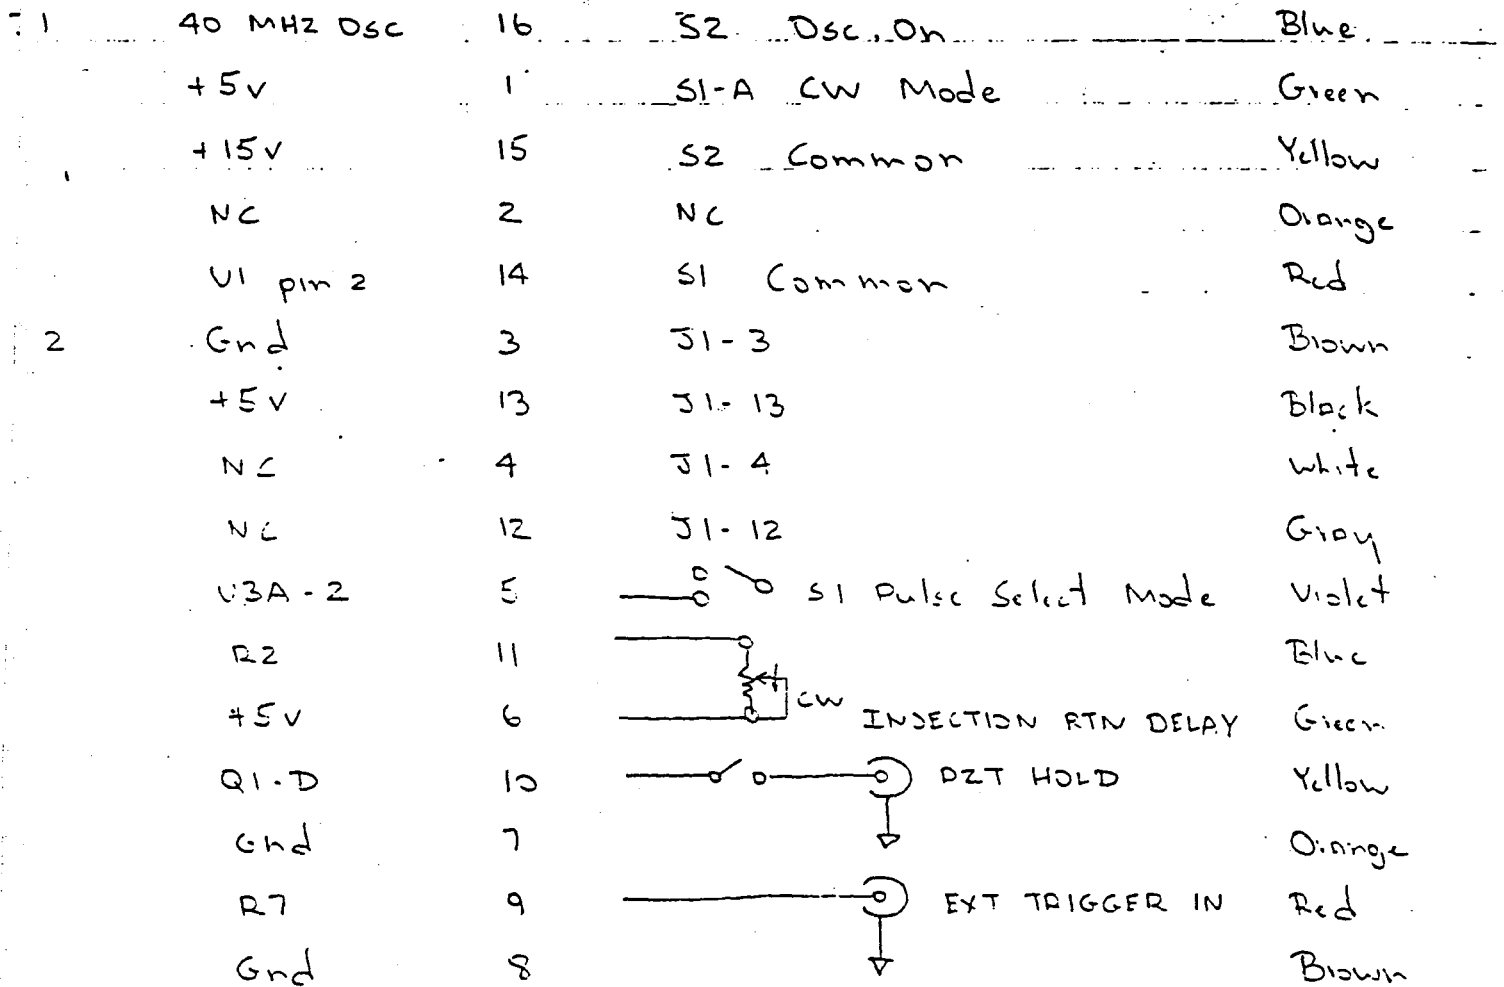 1 40 MHz Osc 16 S2 Osc. On Blue
+5v 1 S1-A CW Mode Green
+15v 15 S2 Common Yellow
NC 2 NC Orange
U1 pin 2 14 S1 Common Red
2 Gnd 3 J1-3 Brown
+5v 13 J1-13 Black
NC 4 J1-4 White
NC 12 J1-12 Gray
U3A-2 5 S1 Pulse Select Mode Violet
R2 11 Blue
CW
+5v 6 INJECTION RTN DELAY Green
Q1-D 10 PZT HOLD Yellow
Gnd 7 Orange
R7 9 EXT TRIGGER IN Red
Gnd 8 Brown